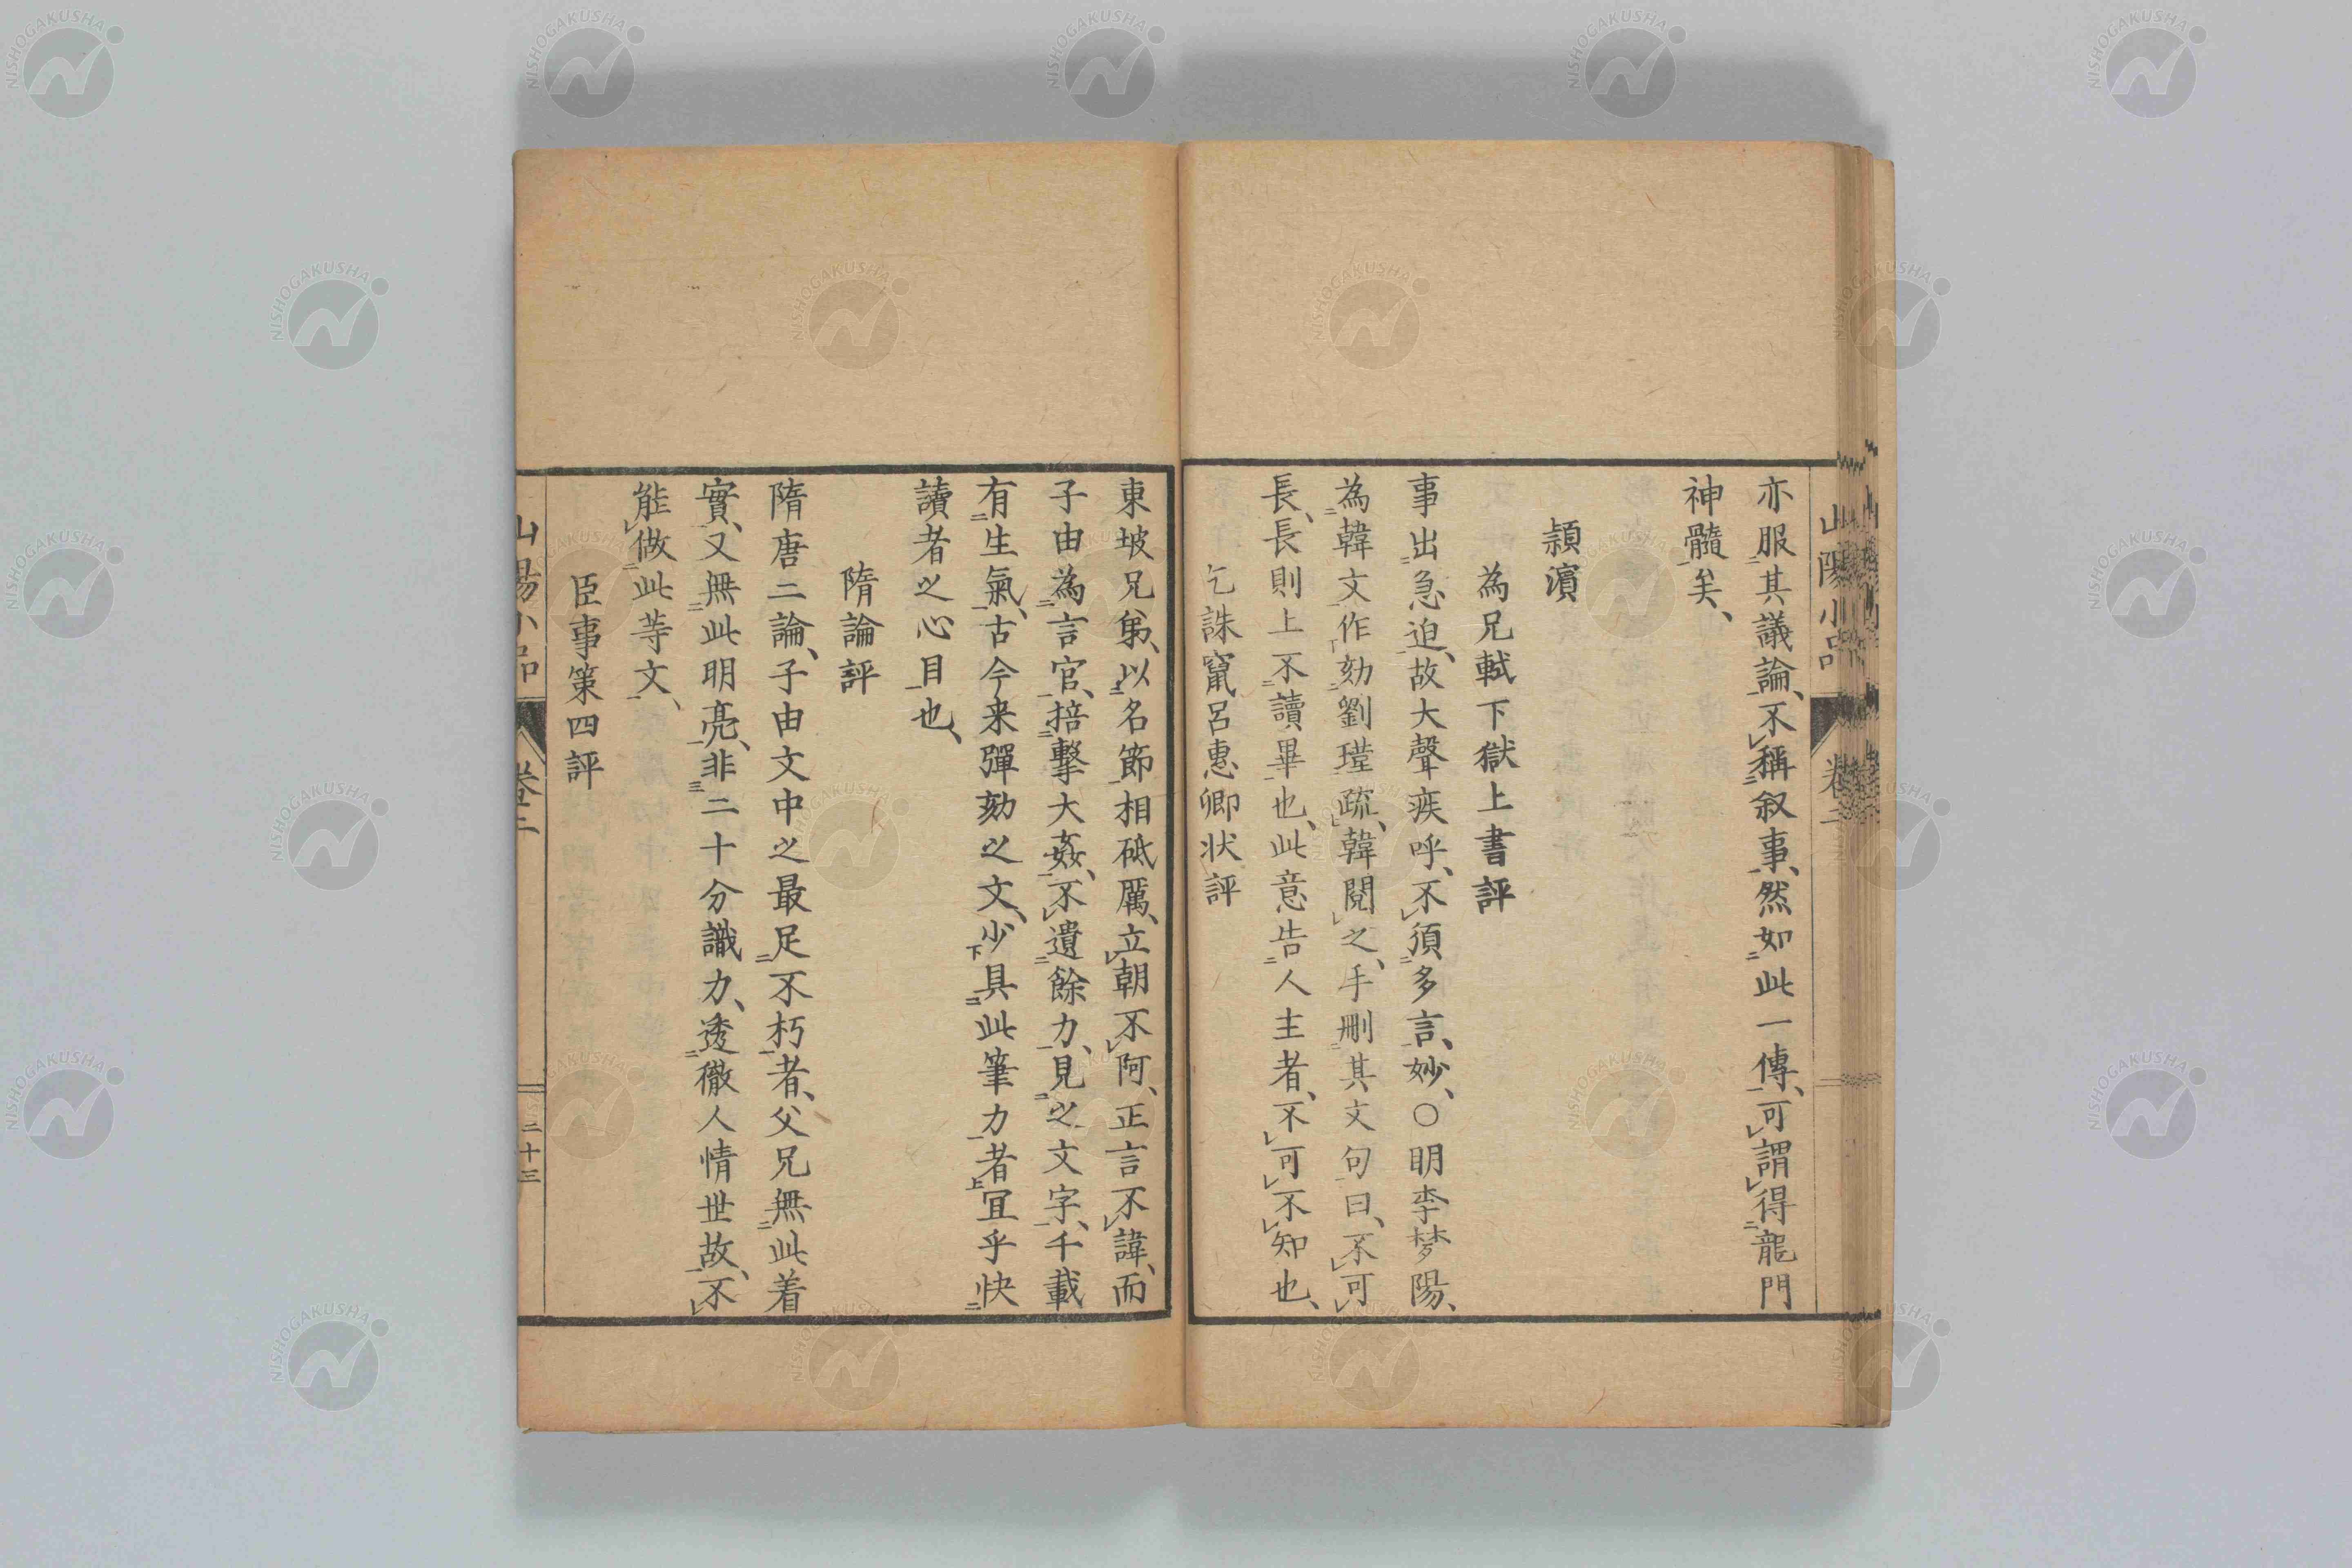 亦服其議論、不稱叙事、然如此一傳、可謂得龍門
神髓矣、
潁濱
為兄軾下獄上書評
事出急迫、故大聲疾呼、不須多言、妙、○明李梦陽、
為韓文作劾劉瑾疏、韓閱之、手刪其文句曰、不可
長、長則上不讀畢也、此意告人主者、不可不知也、
乞誅竄呂惠卿状評
東坡兄弟、以名節相砥厲、立朝不阿、正言不諱、而
子由為言官、掊擊大姦、不遺餘力、見之文字、千載
有生氣、古今来彈劾之文、少具此筆力者宜乎快
讀者之心目也、
隋論評
隋唐二論、子由文中之最足不朽者、父兄無此着
實、又無此明亮、非二十分識力、透徹人情世故、不
能做此等文、
臣事策四評
山陽小品 卷二
山陽小品 卷二 二十三
NISHOGAKUSHA